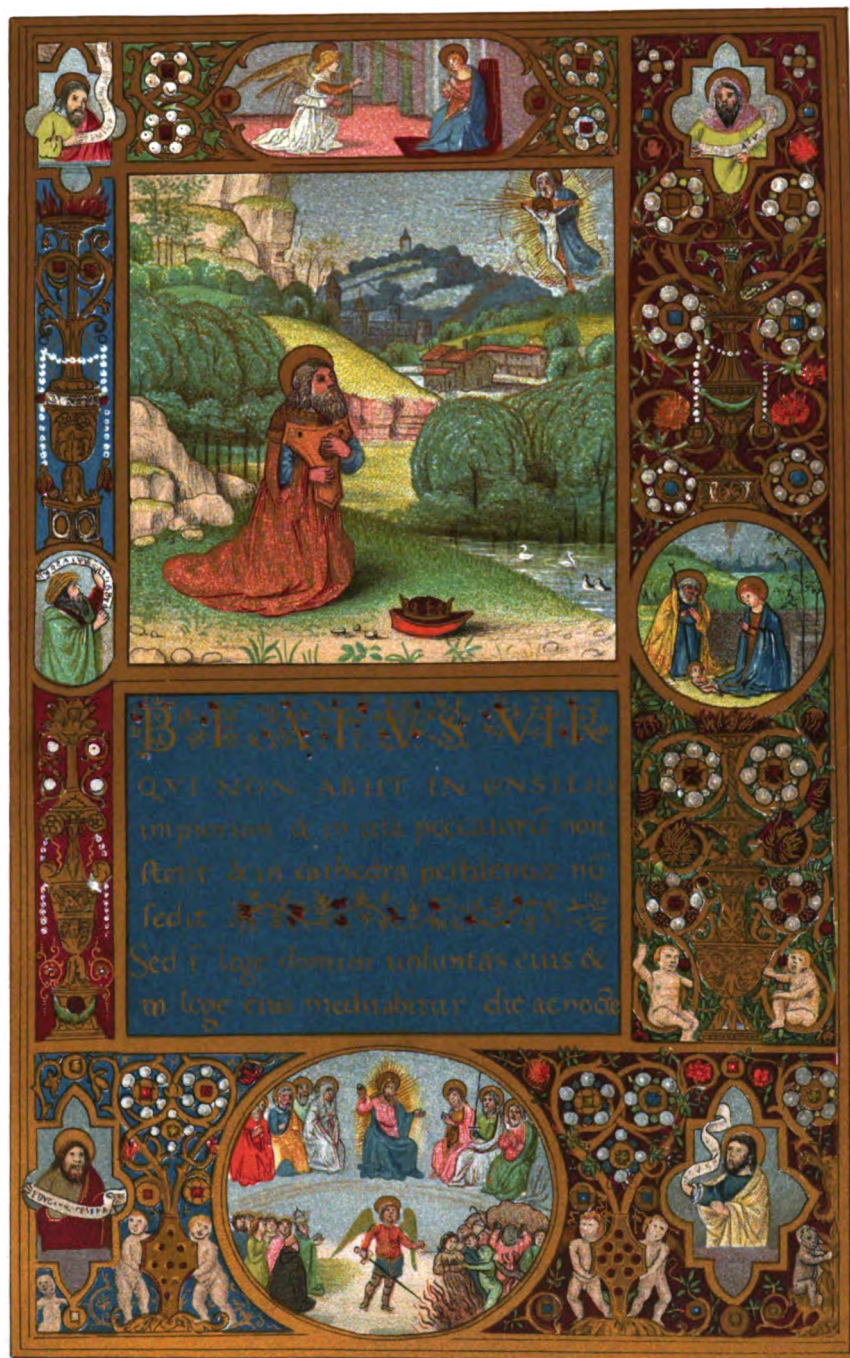 BEATVS VIR
QVI NON ABIIT IN CNSILIO
impiorum & in uia peccatorū non
stetit & in cathedra pestilentiae nō
sedit
Sed ī lege domini uoluntas eius &
in lege eius meditabitur die ac nocte